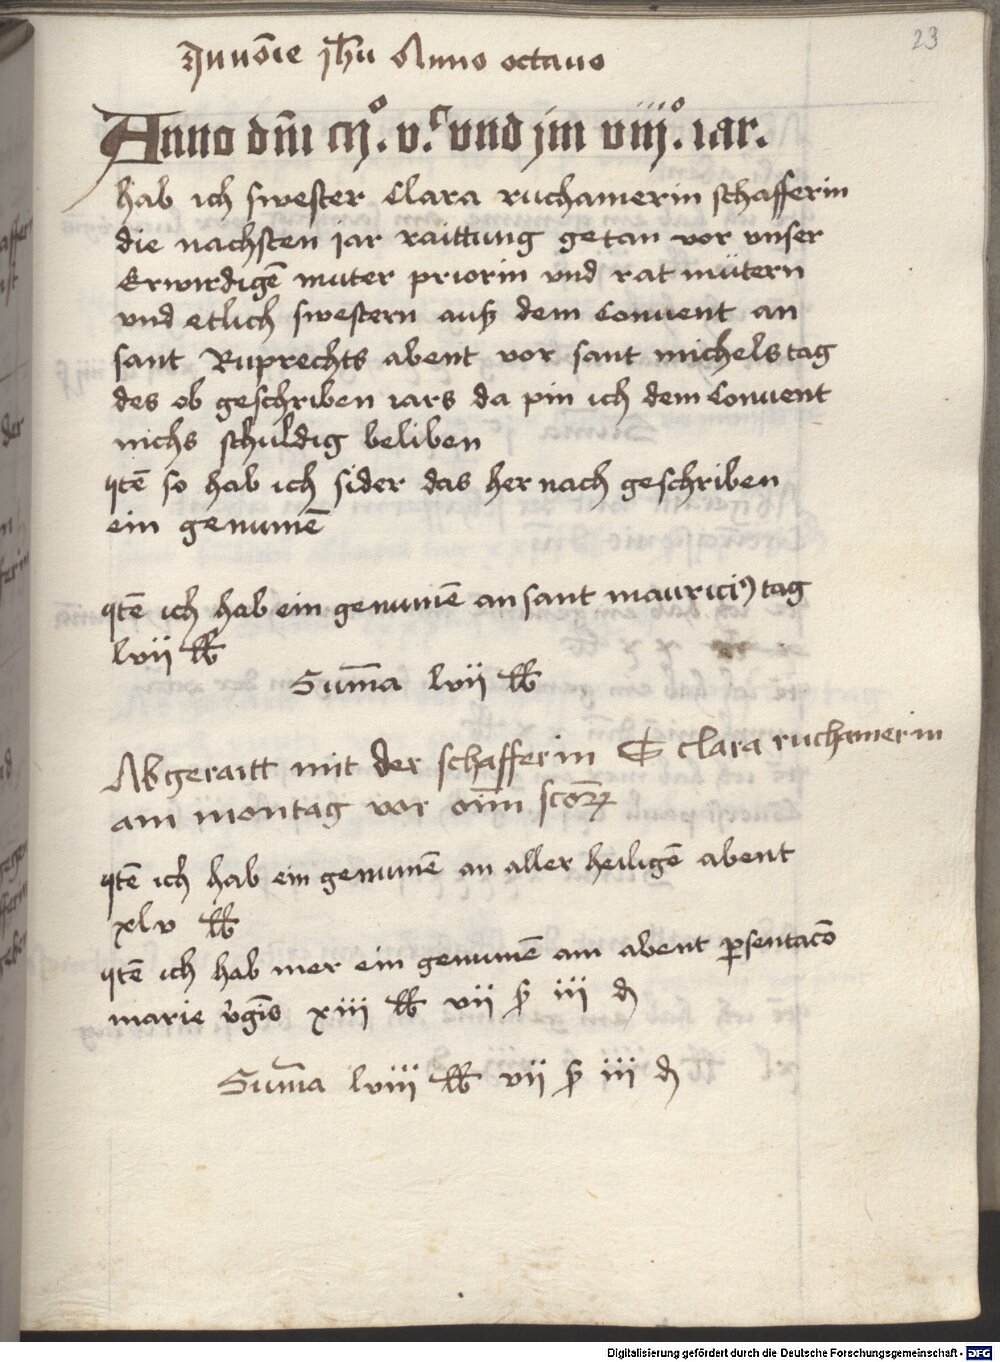 23
In noīe jhū Anno octauo
Anno dn̄i m̊. v.c vnd jm viij̊. iar.
hab ich swester Clara ruchamerin schafferin
die nachsten jar raittung getan vor vnser
Erwirdigē muter priorin vnd rat mütern
vnd etlich swestern auß dem Conuent an
sant Ruprechts abent vor sant michels tag
des ob geschriben iars da pin ich dem Conuent
nichs schuldig beliben
Itē so hab ich sider das her nach geschriben
ein genumē
Itē ich hab ein genumē an sant maurici9 tag
lvii lb
Sum̄a lvii lb
Abgeraitt mit der schafferin S clara ruchamerin
am montag vor oīm scorꝝ
Itē ich hab ein genumē an aller heiligē abent
xlv lb
Itē ich hab mer ein genumē am abent p̄sentacō
marie v̓gīs xiii lb vii ß iii d
Sum̄a lviii lb vii ß iii d
Digitalisierung gefördert durch die Deutsche Forschungsgemeinschaft - DFG